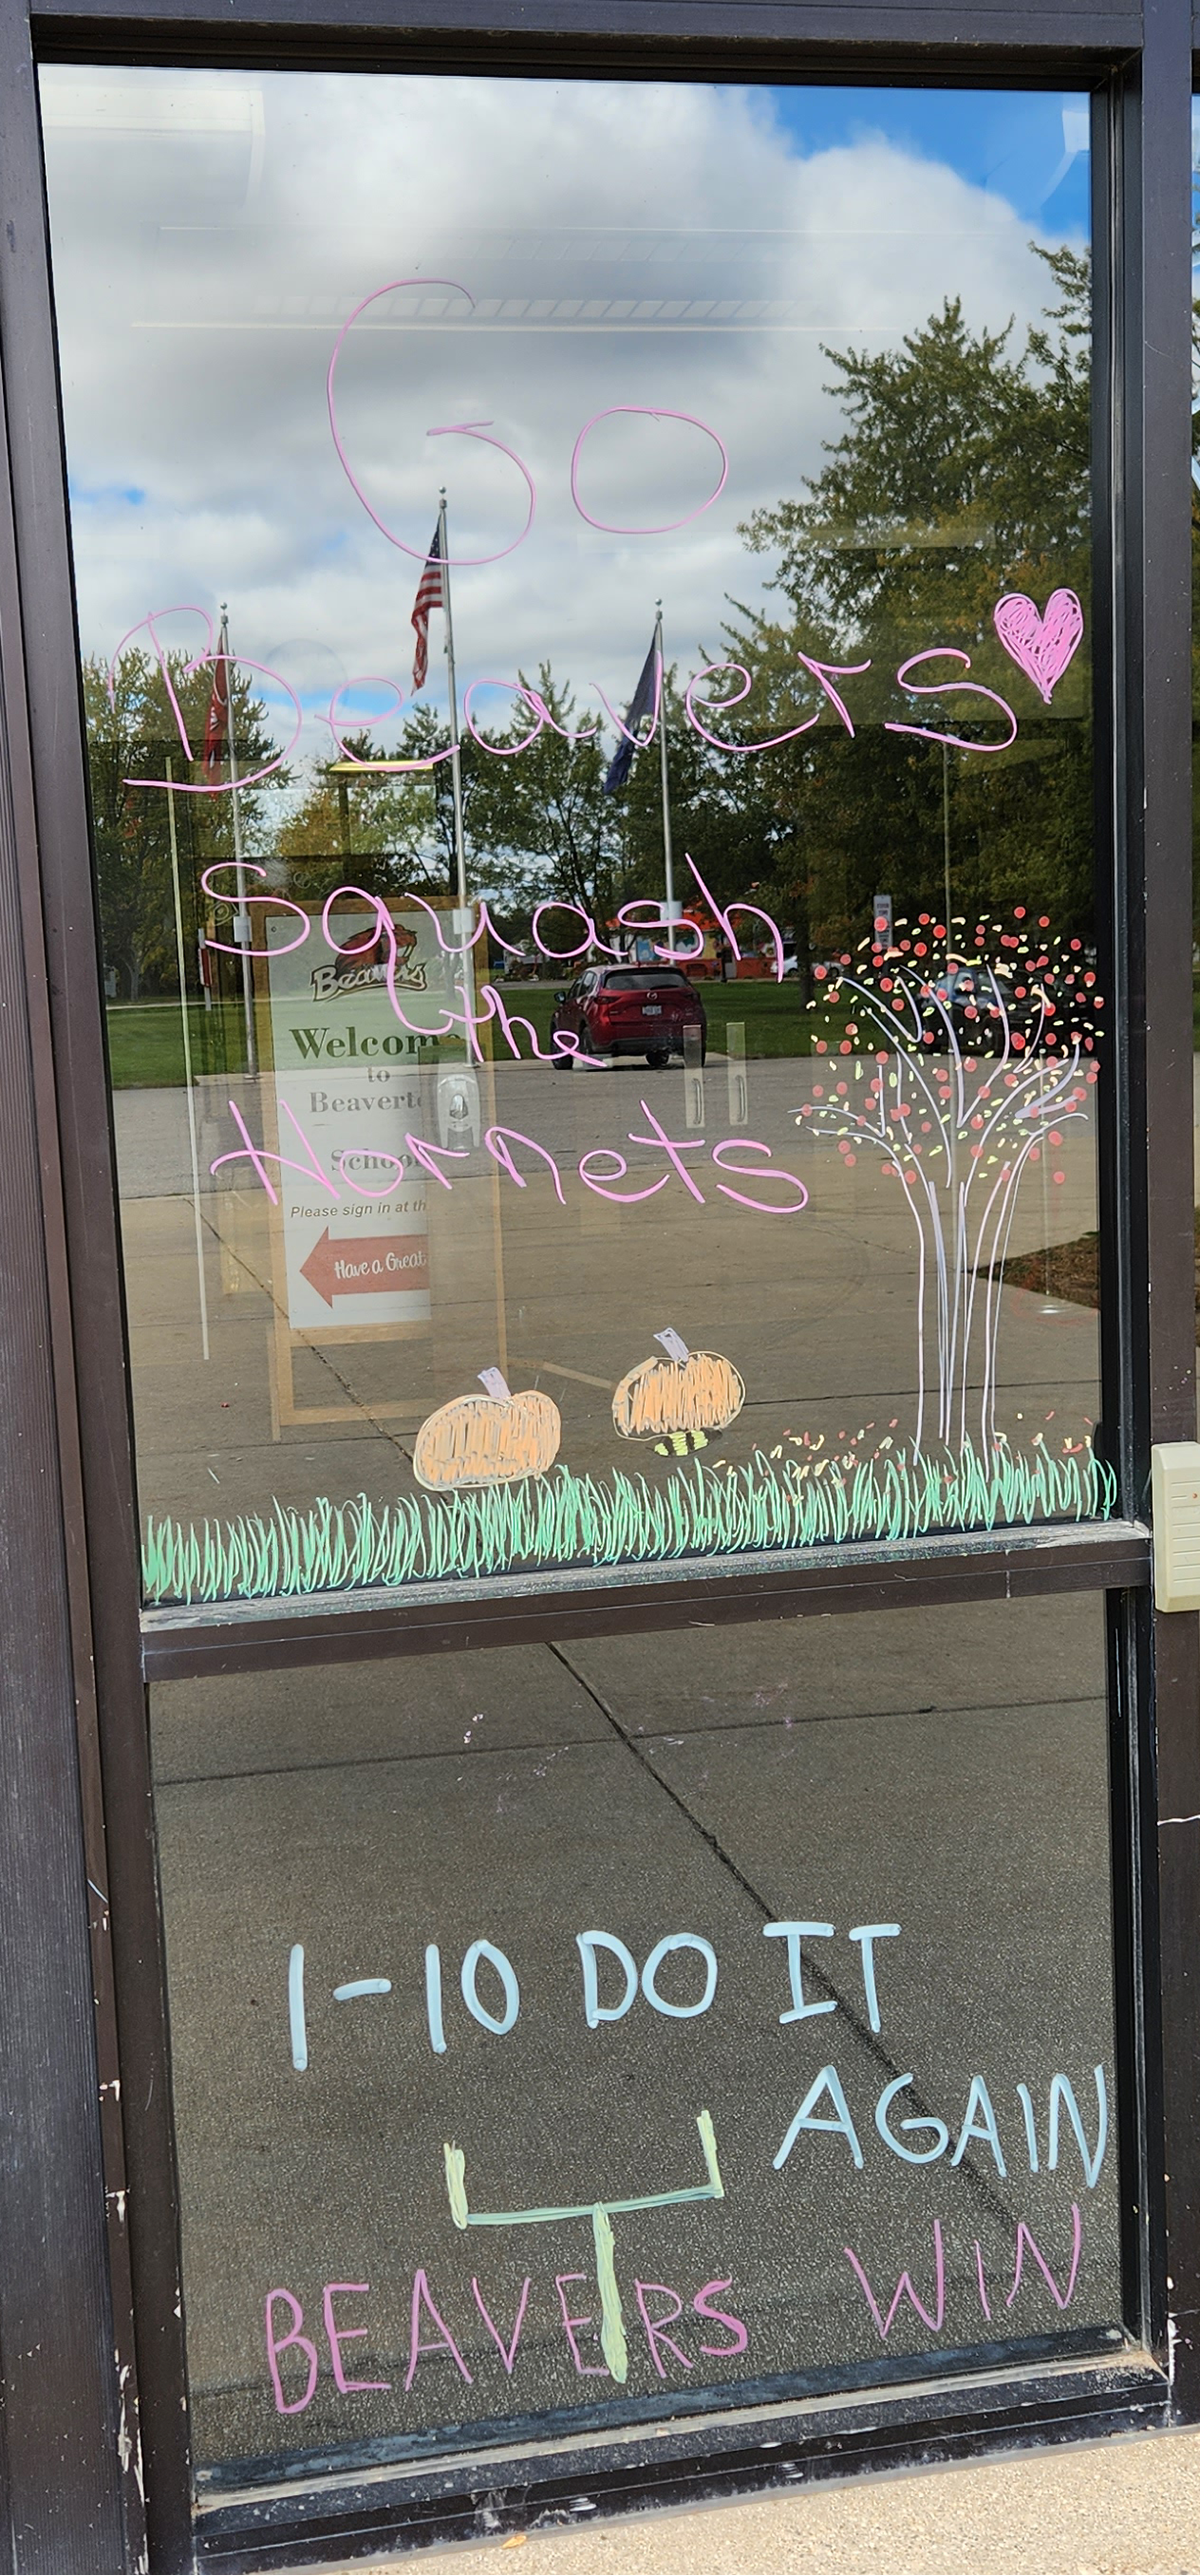 Go
Beavers
Squash
the
Hornets
Beavers
Welcom
to
Beaverto
School
Please sign in at th
Have a Great
1-10 DO IT
AGAIN
BEAVERS WIN